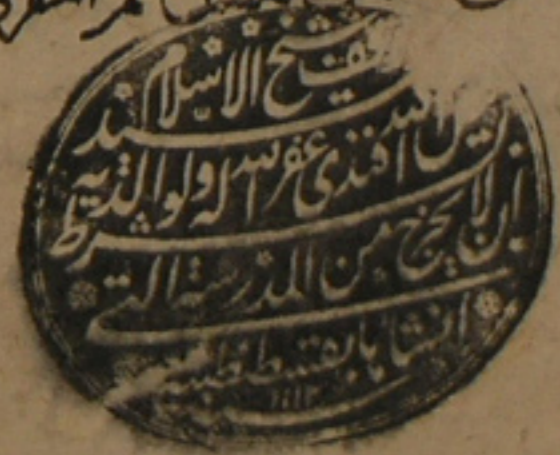 وقف شيخ الاسلام
السيد
فيض الله افندى غفر الله له ولوالديه
بشرط
ان لا يخرج من المدرسة التى
انشاها بقسطنطينية
١١١٣